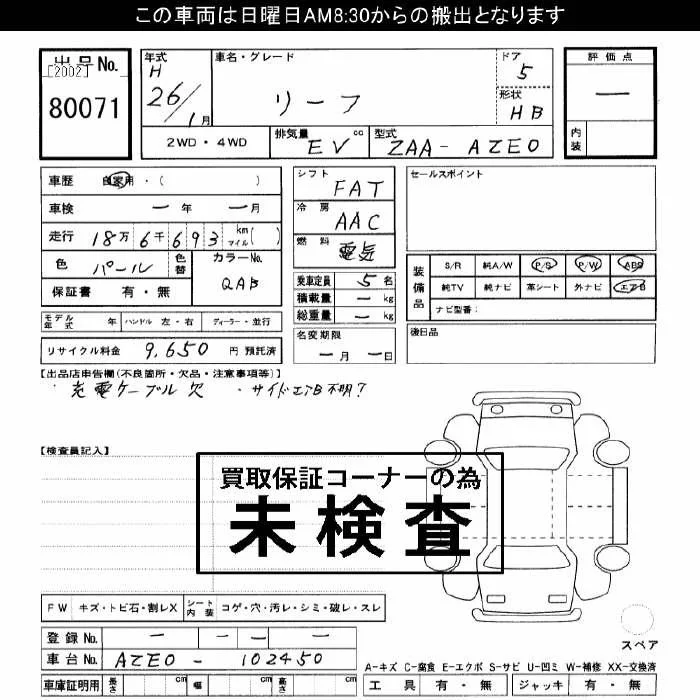 この車両は日曜日AM8:30からの搬出となります
出品No.
[2002]
80071
年式
H
26/1月
車名・グレード
リーフ
ドア
5
形状
HB
2WD・4WD
排気量
EV cc
型式
ZAA-AZE0
評価点
ー
内装
車歴 自家用・( )
車検 ー年 ー月
走行 18万6千693 km マイル( )
色 パール
色替
カラーNo.
QAB
保証書 有・無
シフト
FAT
冷房
AAC
燃料
電気
乗車定員 5名
積載量 ー kg
総重量 ー kg
セールスポイント
装備品
S/R 純A/W P/S P/W ABS
純TV 純ナビ 革シート 外ナビ エアB
ナビ型番:
モデル年式 年 ハンドル 左・右 ディーラー・並行
リサイクル料金 9,650 円 預託済
名変期限
ー月 ー日
後日品
【出品店申告欄(不良箇所・欠品・注意事項等)】
・充電ケーブル欠 ・サイドエアB不明?
【検査員記入】
買取保証コーナーの為
未検査
FW キズ・トビ石・割レX シート内装 コゲ・穴・汚レ・シミ・破レ・スレ
登録No. ー ー ー
車台No. AZE0 - 102450
車庫証明用 長さ cm 幅 cm 高さ cm
スペア
A-キズ C-腐食 E-エクボ S-サビ U-凹ミ W-補修 XX-交換済
工具 有・無 ジャッキ 有・無